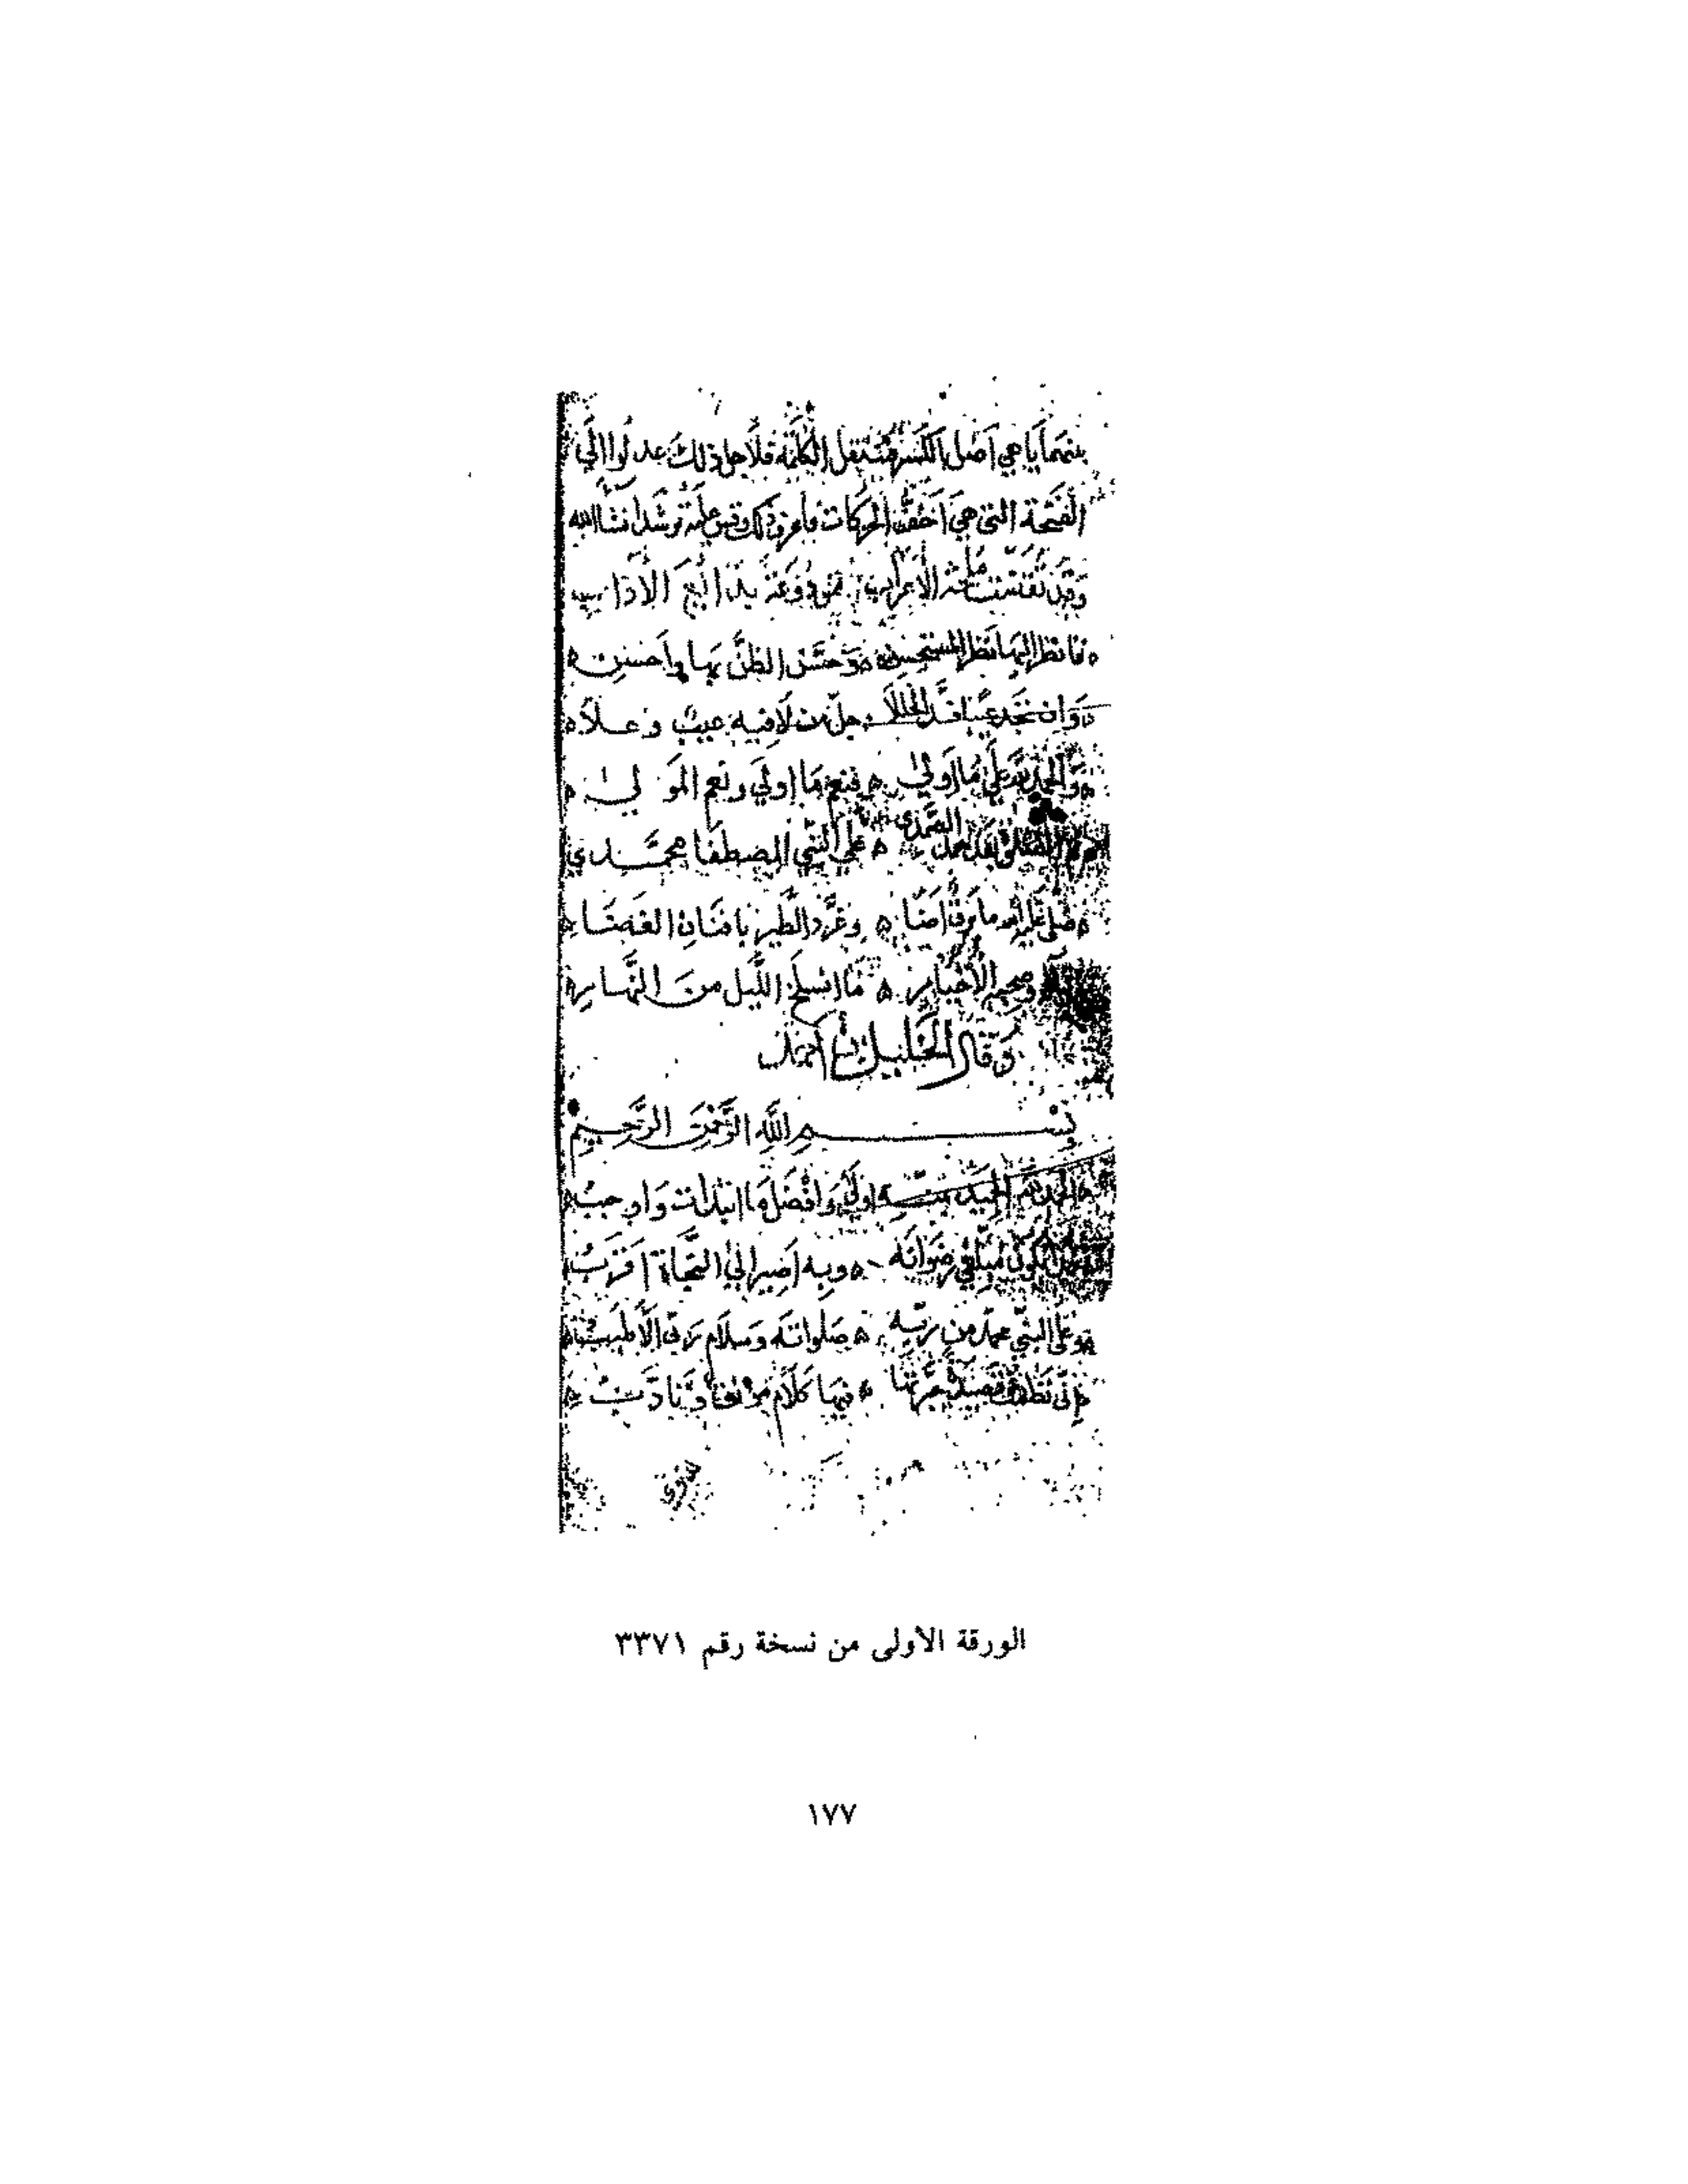 بينهما يا هي اصل الكسر فتثقل الكلمة فلاجل ذلك عدلوا الي
الفتحة التي هي اخف الحركات فاعرف ذلك وقس عليه ترشد ان شا الله
وقد تقضت ملحة الاعراب مودعة بدائع الاداب
فانظر اليها نظر المستحسن وحسن الظن بها واحسن
وان تجد عيبا فسد الخللا جل من لا فيه عيب وعلا
والحمد لله علي ما اولي فنعم ما اولي ونعم المولي
الصلاة بعد حمد الصمدي علي النبي المصطفا محمدي
صلي عليه الله ما برق اضا وغرد الطير بافنان الغضا
وصحبه الاخيار ما انسلخ الليل من النهار
وقال الخليل بن احمد
بسم الله الرحمن الرحيم
الحمد لله الحميد بمنه اولي وافضل ما ابتدات واوجب
يكون مبلغي رضوانه وبه اصير الي النجاة اقرب
وعلي النبي محمد من ربه صلواته وسلام ربي الاطيب
اني نظمت قصيدة حبرتها فيها كلام مونق وتادب
الورقة الأولى من نسخة رقم ٣٣٧١
١٧٧